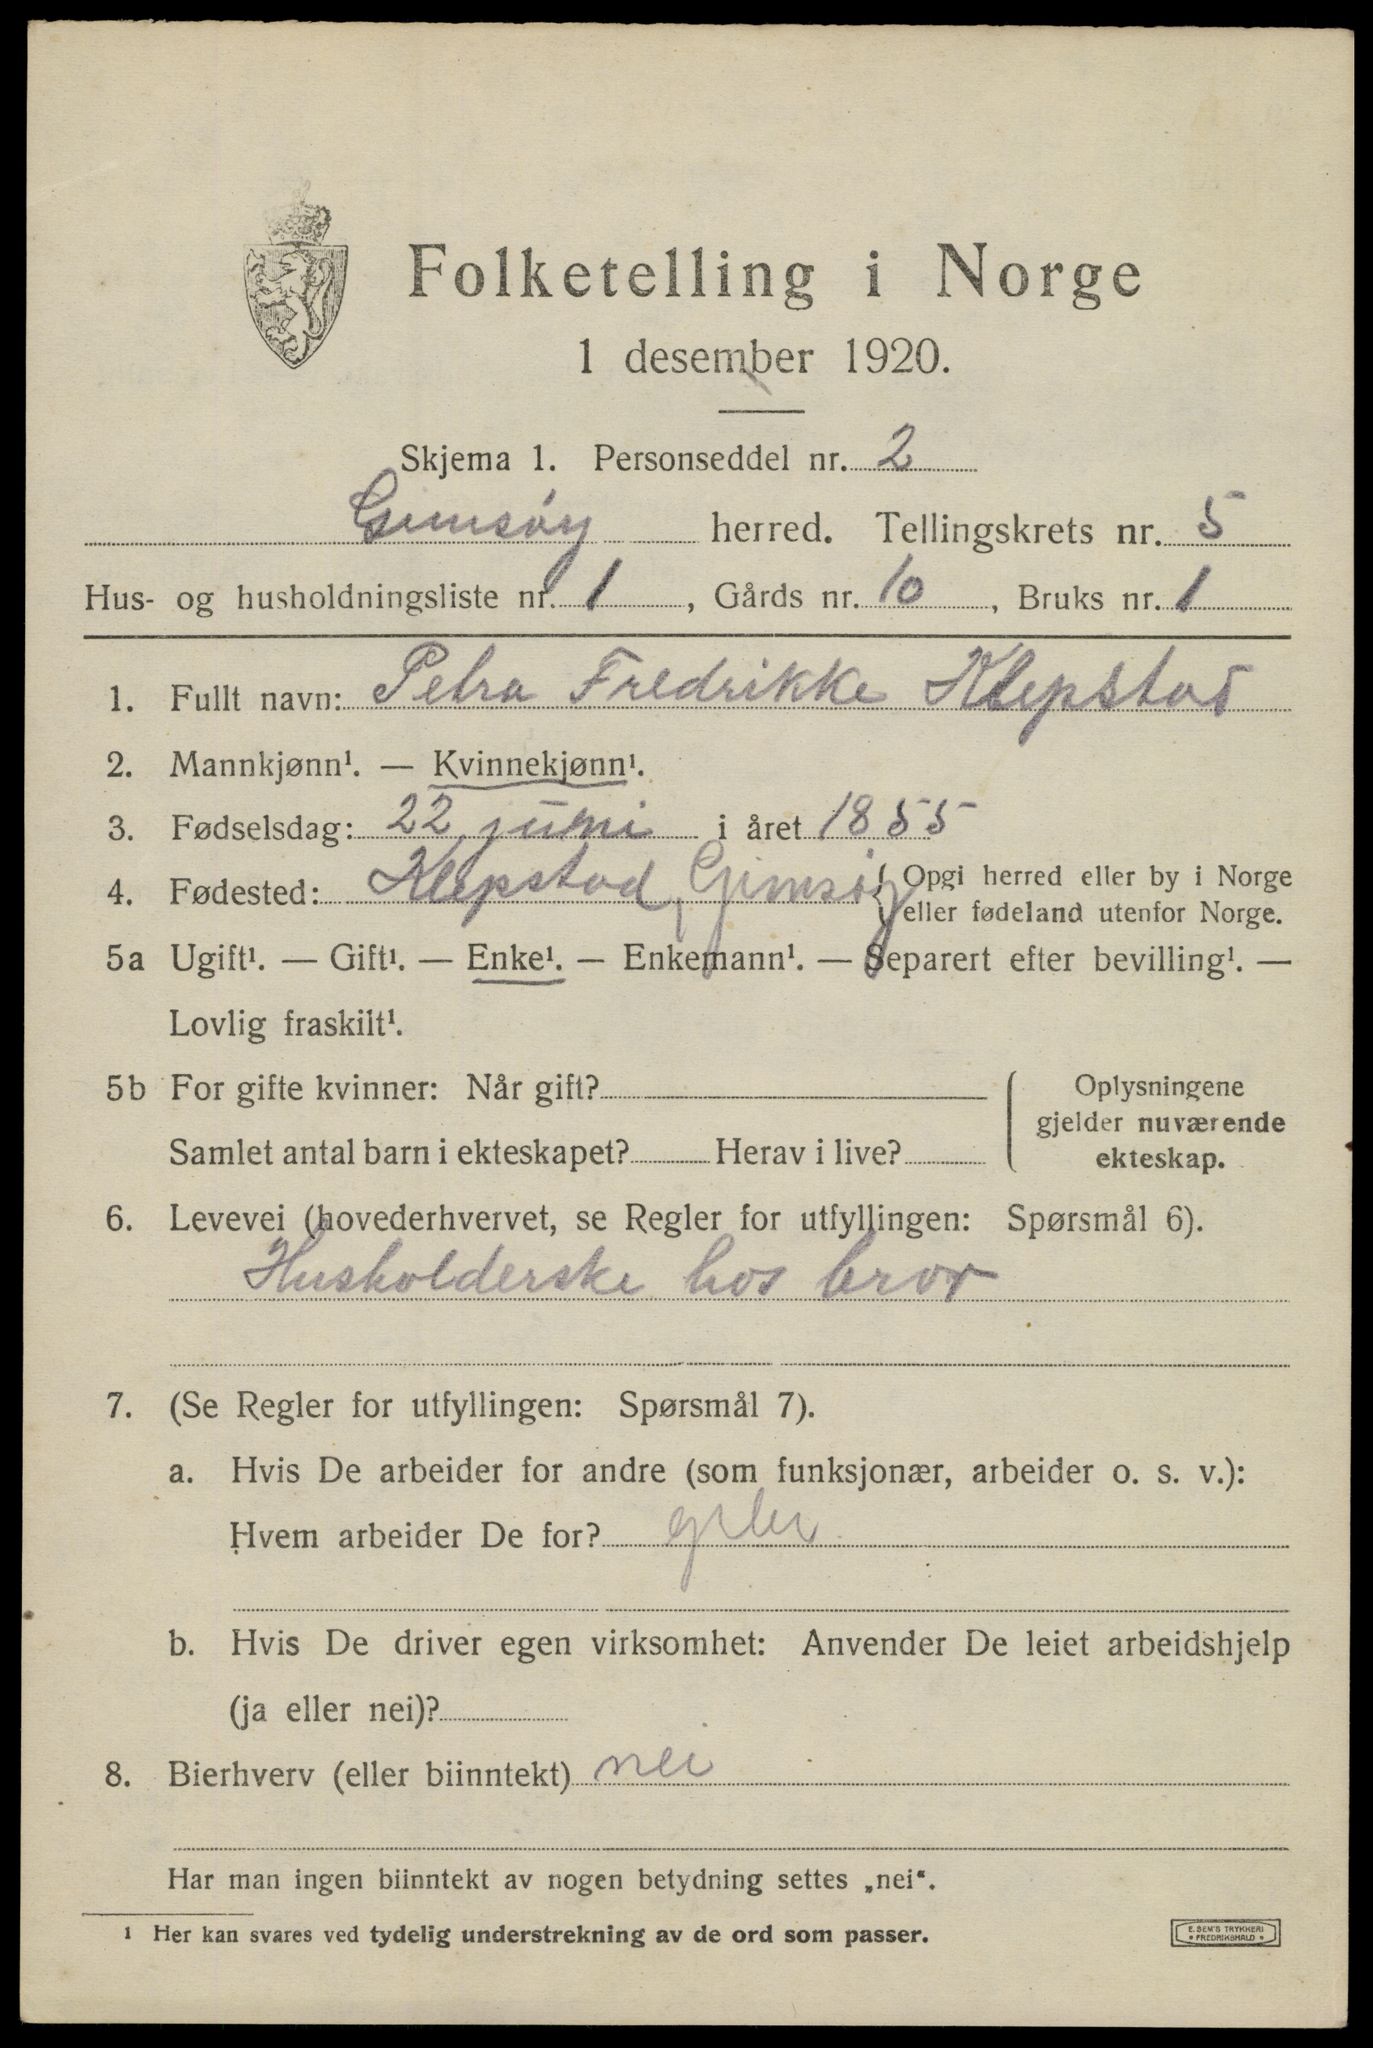 Folketelling i Norge
1 desember 1920.
Skjema 1. Personseddel nr. 2
Gimsøy herred. Tellingskrets nr. 5
Hus- og husholdningsliste nr. 1, Gårds nr. 10, Bruks nr. 1
1. Fullt navn: Petra Fredrikke Klepstad
2. Mannkjønn¹. — Kvinnekjønn¹.
3. Fødselsdag: 22 juni i året 1855
4. Fødested: Klepstad, Gimsøy { Opgi herred eller by i Norge
eller fødeland utenfor Norge.
5a Ugift¹. — Gift¹. — Enke¹. — Enkemann¹. — Separert efter bevilling¹. —
Lovlig fraskilt¹.
5b For gifte kvinner: Når gift?
Samlet antal barn i ekteskapet? Herav i live?
Oplysningene
gjelder nuværende
ekteskap.
6. Levevei (hovederhvervet, se Regler for utfyllingen: Spørsmål 6).
Husholderske hos bror
7. (Se Regler for utfyllingen: Spørsmål 7).
a. Hvis De arbeider for andre (som funksjonær, arbeider o. s. v.):
Hvem arbeider De for?
b. Hvis De driver egen virksomhet: Anvender De leiet arbeidshjelp
(ja eller nei)?
8. Bierhverv (eller biinntekt) nei
Har man ingen biinntekt av nogen betydning settes „nei“.
¹ Her kan svares ved tydelig understrekning av de ord som passer.
E. SEM'S TRYKKERI
• FREDRIKSHALD •